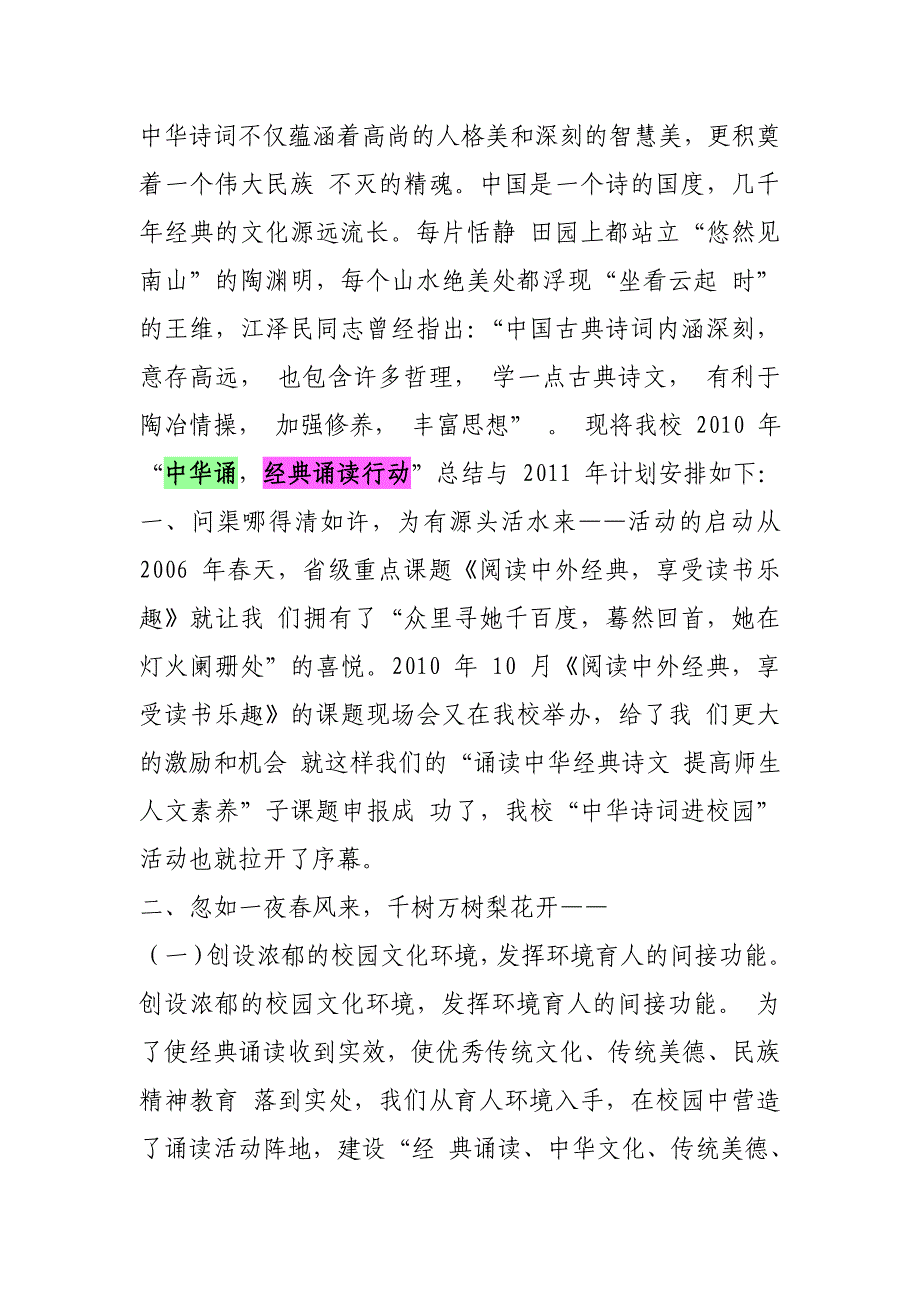 中华诗词不仅蕴涵着高尚的人格美和深刻的智慧美，更积奠
着一个伟大民族 不灭的精魂。中国是一个诗的国度，几千
年经典的文化源远流长。每片恬静 田园上都站立“悠然见
南山”的陶渊明，每个山水绝美处都浮现“坐看云起 时”
的王维，江泽民同志曾经指出：“中国古典诗词内涵深刻，
意存高远， 也包含许多哲理， 学一点古典诗文， 有利于
陶冶情操， 加强修养， 丰富思想” 。 现将我校 2010 年
“中华诵，经典诵读行动”总结与 2011 年计划安排如下：
一、问渠哪得清如许，为有源头活水来——活动的启动从
2006 年春天，省级重点课题《阅读中外经典，享受读书乐
趣》就让我 们拥有了“众里寻她千百度，蓦然回首，她在
灯火阑珊处”的喜悦。2010 年 10 月《阅读中外经典，享
受读书乐趣》的课题现场会又在我校举办，给了我 们更大
的激励和机会 就这样我们的“诵读中华经典诗文 提高师生
人文素养”子课题申报成 功了，我校“中华诗词进校园”
活动也就拉开了序幕。
二、忽如一夜春风来，千树万树梨花开——
（一）创设浓郁的校园文化环境，发挥环境育人的间接功能。
创设浓郁的校园文化环境，发挥环境育人的间接功能。 为
了使经典诵读收到实效，使优秀传统文化、传统美德、民族
精神教育 落到实处，我们从育人环境入手，在校园中营造
了诵读活动阵地，建设“经 典诵读、中华文化、传统美德、